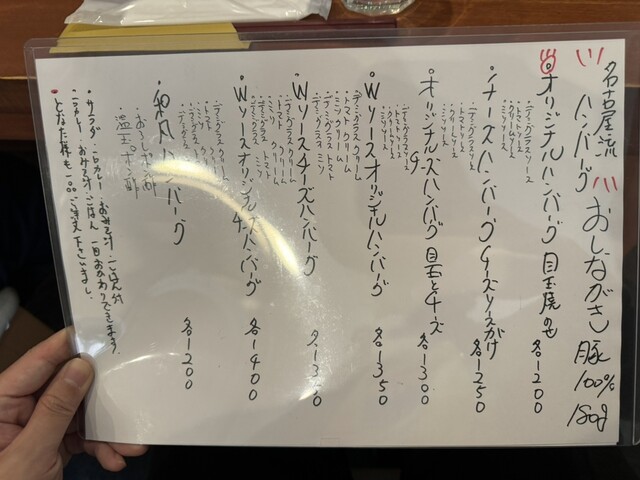 名古屋流
ハンバーグ おしながき 豚100% 180g
オリジナルハンバーグ 目玉焼のせ 各1200
・デミグラスソース
・トマトソース
・クリームソース
・ミソソース
チーズハンバーグ チーズソースがけ 各1250
・デミグラスソース
・トマトソース
・クリームソース
・ミソソース
オリジナルチーズハンバーグ 目玉とチーズ 各1300
・デミグラスソース
・トマトソース
・クリームソース
・ミソソース
Wソースオリジナルハンバーグ 各1350
・トマト クリーム
・ミソ クリーム
・デミグラス クリーム
・デミグラス トマト
・デミグラス ミソ
Wソースチーズハンバーグ 各1350
・デミグラス クリーム
・トマト クリーム
・ミソ クリーム
・デミグラス ミソ
Wソースオリジナルチーズハンバーグ 各1400
・トマト クリーム
・ミソ クリーム
・デミグラス
和風ハンバーグ 各1200
・おろしポン酢
・温玉ポン酢
・サラダ・カレー・おみそ汁・ごはんが
・カレー・おみそ汁・ごはん
おかわりできます。
ご注文下さいませ。